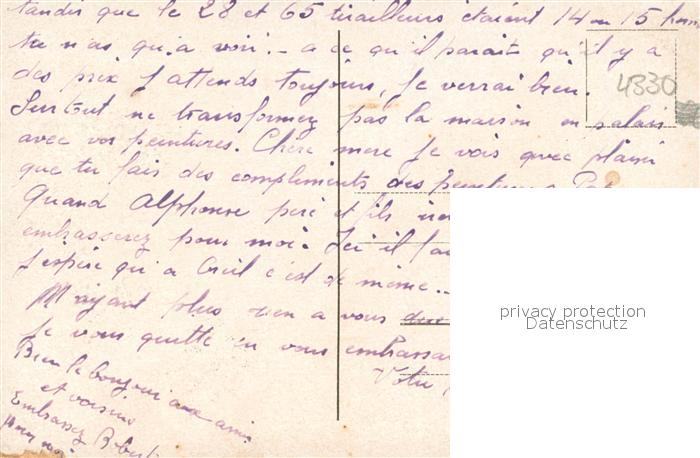 tandis que le 28 et 65 tirailleurs étaient 14 ou 15 hom
tu n'as qu'a voir. - a ce qu'il parait qu'il y a
des prix j'attends toujours, je verrai bien.
Surtout ne transformez pas la maison en salon
avec vos peintures. Chère mere je vois avec plaisir
que tu fais des compliments des peintures a
Quand Alphonse peré et fils
embrasserez pour moi. Ici il fa
j'espère qu'a Creil c'est de même..
N'ayant plus rien a vous dire
je vous quitte en vous embrassan
Votre
Bien le bonjour aux amis
et voisins
Embrassez Robert
pour moi
4830
privacy protection
Datenschutz